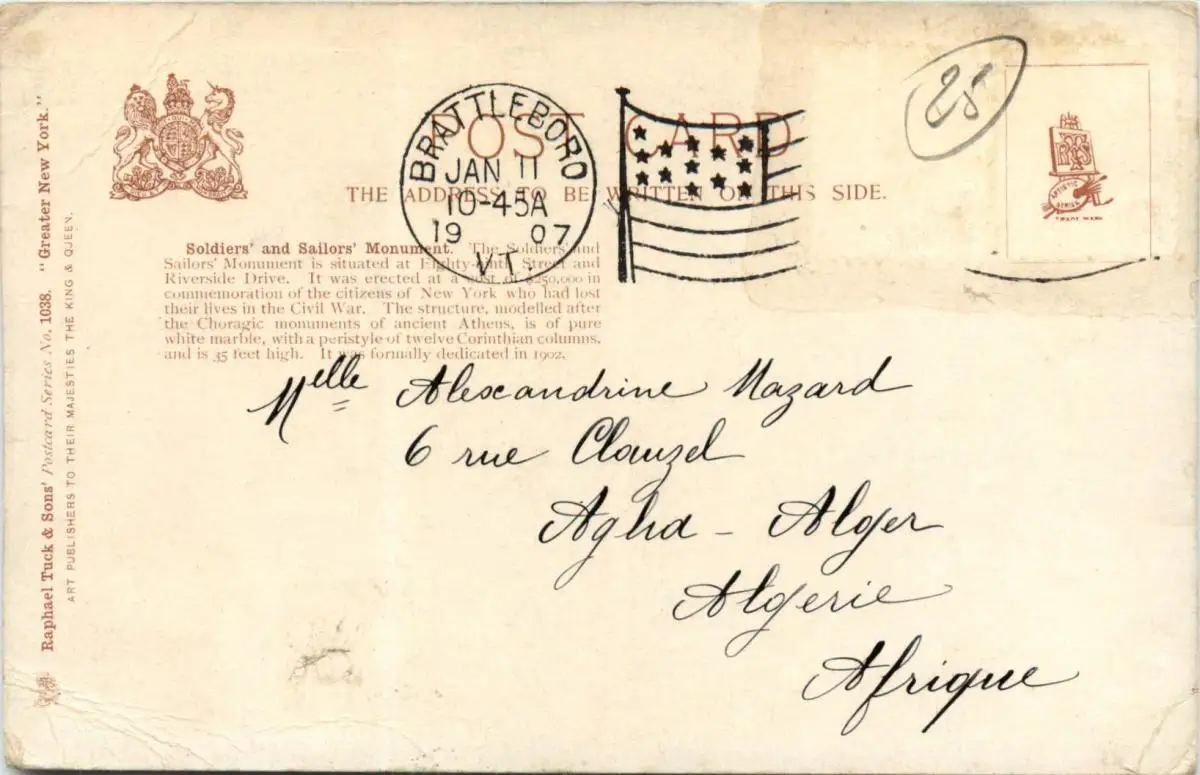 POST CARD
THE ADDRESS TO BE WRITTEN ON THIS SIDE.
BRATTLEBORO
JAN 11
10-45A
19 07
VT.
25
RTS
ARTISTIC
SERIES
TRADE MARK
Soldiers' and Sailors' Monument. The Soldiers' and
Sailors' Monument is situated at Eighty-ninth Street and
Riverside Drive. It was erected at a cost of $250,000 in
commemoration of the citizens of New York who had lost
their lives in the Civil War. The structure, modelled after
the Choragic monuments of ancient Athens, is of pure
white marble, with a peristyle of twelve Corinthian columns,
and is 35 feet high. It was formally dedicated in 1902.
Melle Alexandrine Mazard
6 rue Clauzel
Agha - Alger
Algerie
Afrique
Raphael Tuck & Sons' Postcard Series No. 1038. "Greater New York."
ART PUBLISHERS TO THEIR MAJESTIES THE KING & QUEEN.